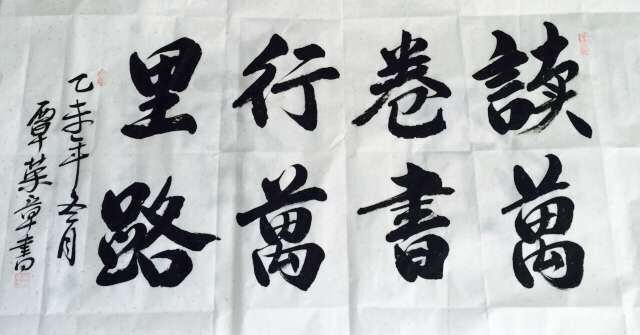 讀萬
卷書
行萬
里路
乙未年冬月
覃葉章書